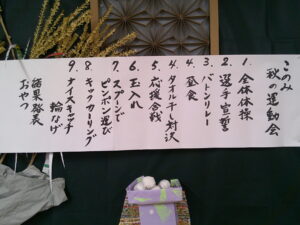 このみ
秋の運動会
1. 全体体操
2. 選手宣誓
3. バトンリレー
4. 昼食
4. タオル干し対決
5. 応援合戦
6. 玉入れ
7. スプーンで
ピンポン運び
8. キッカーリング
9. ナイスキャッチ
輪なげ
結果発表
おやつ